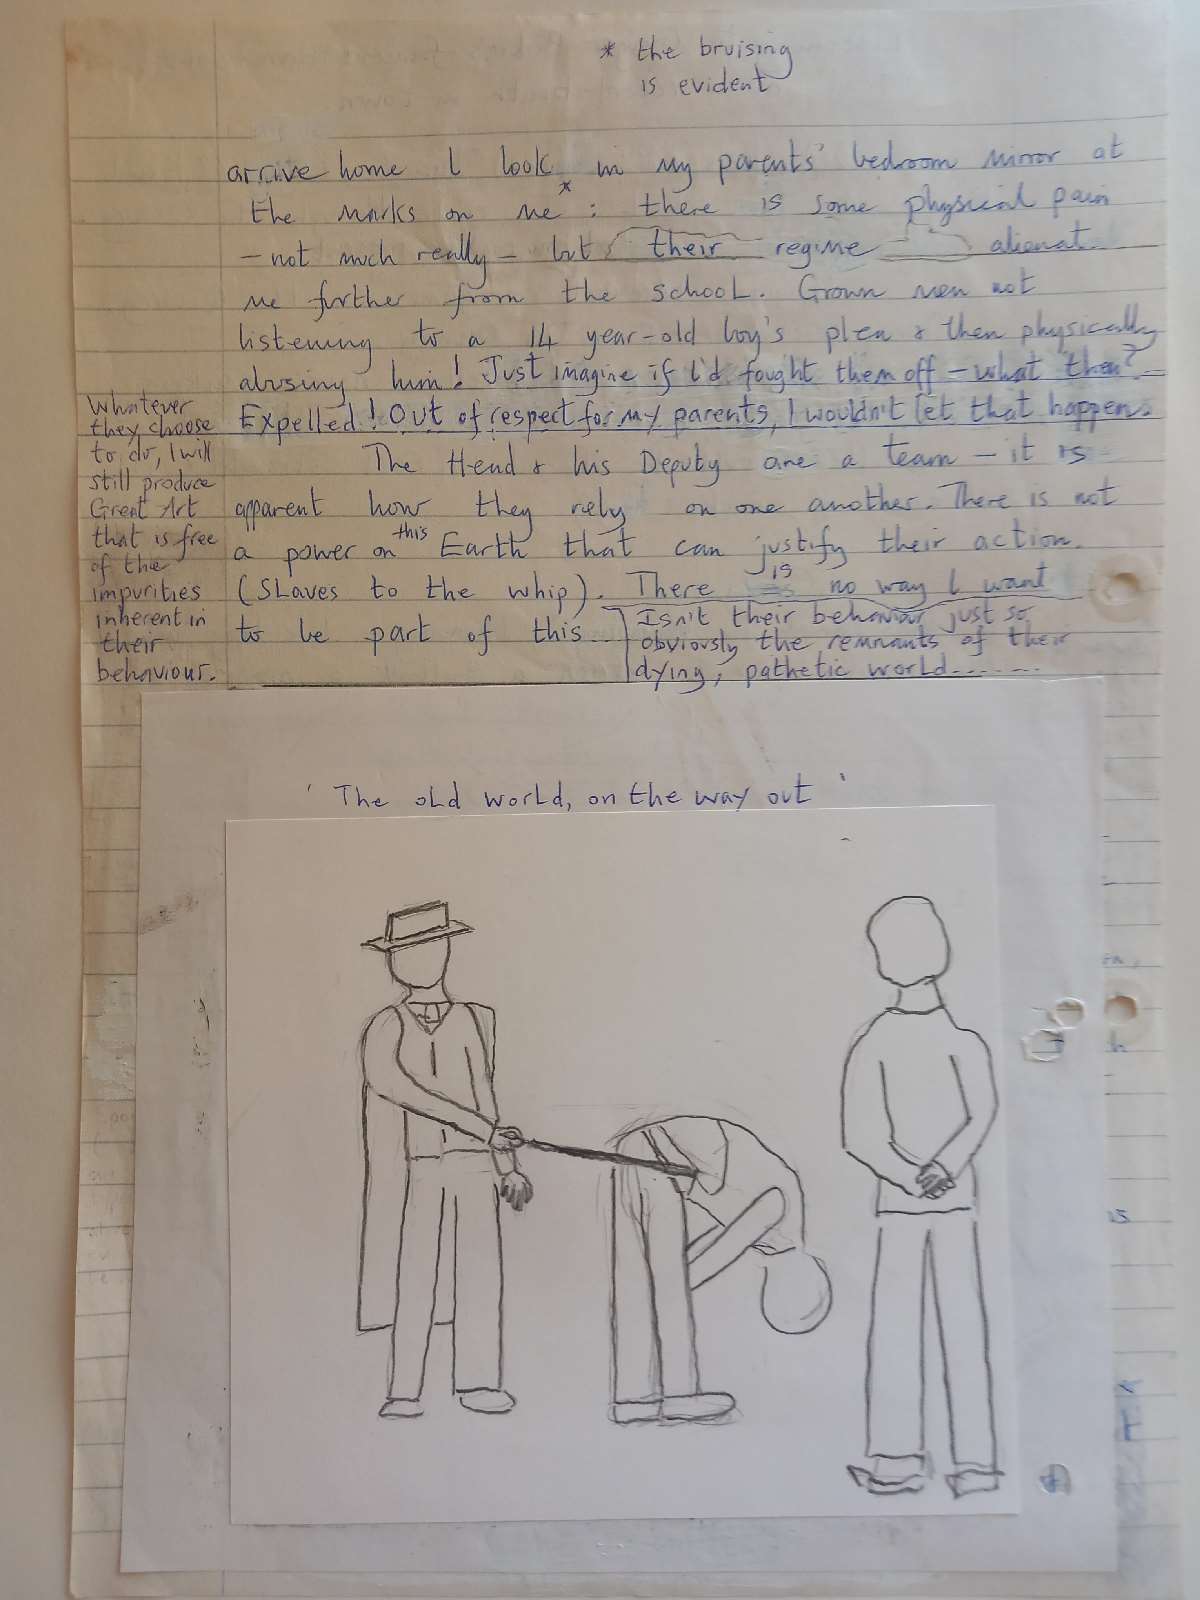 * the bruising
is evident
arrive home I look in my parents' bedroom mirror at
the marks on me * : there is some physical pain
- not much really - but their regime alienat
me further from the school. Grown men not
listening to a 14 year-old boy's plea & then physically
abusing him! Just imagine if I'd fought them off - what then?
Expelled! Out of respect for my parents, I wouldn't let that happen.
The Head & his Deputy are a team - it is
apparent how they rely on one another. There is not
a power on this Earth that can justify their action.
(Slaves to the whip). There is no way I want
to be part of this
Isn't their behaviour just so
obviously the remnants of their
dying, pathetic world.......
Whatever
they choose
to do, I will
still produce
Great Art
that is free
of the
impurities
inherent in
their
behaviour.
' The old world, on the way out '